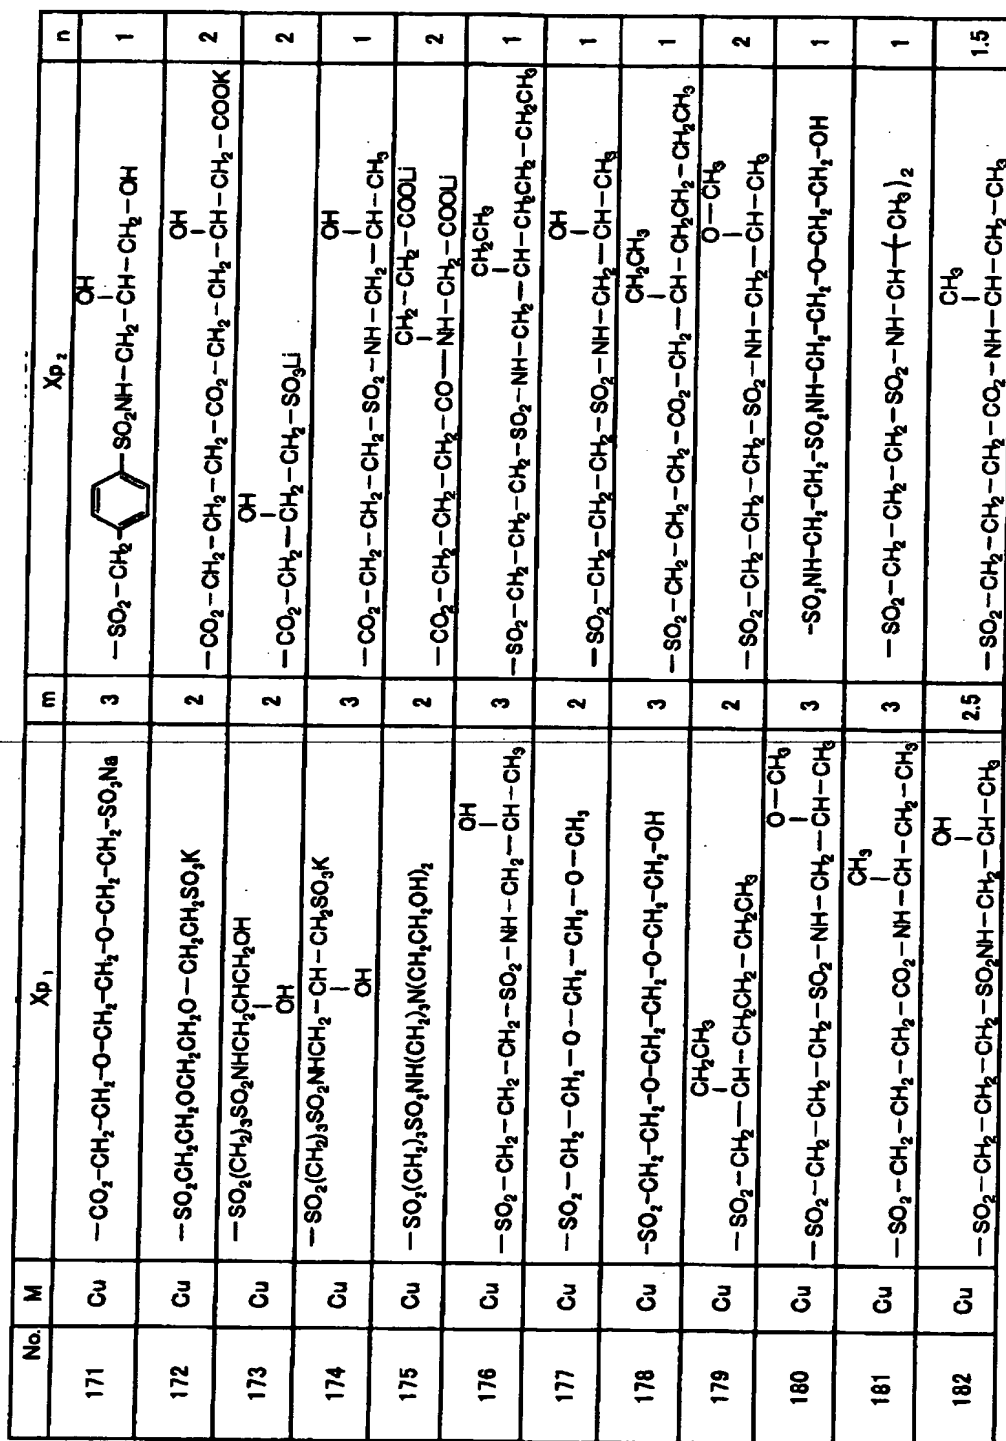 No. M Xp1 m Xp2 n
171 Cu —CO2-CH2-CH2-CH2-O-CH2-CH2-O-CH2-CH2-SO3Na 3 —SO2-CH2-SO2NH-CH2-CH-CH2-OH 1
OH
172 Cu —SO2CH2CH2OCH2CH2O-CH2CH2SO3K 2 —CO2-CH2-CH2-CH2-CO2-CH2-CH2-CH-CH2-COOK 2
OH
173 Cu —SO2(CH2)3SO2NHCH2CHCH2OH 2 —CO2-CH2-CH2-CH2-SO3Li 2
OH OH
174 Cu —SO2(CH2)3SO2NHCH2-CH-CH2SO3K 3 —CO2-CH2-CH2-CH2-SO2-NH-CH2-CH-CH3 1
OH OH
175 Cu —SO2(CH2)3SO2NH(CH2)3N(CH2CH2OH)2 2 —CO2-CH2-CH2-CH2-CO-NH-CH2-CH2-COOLi 2
CH2-CH2-COOLi
176 Cu —SO2-CH2-CH2-CH2-SO2-NH-CH2-CH-CH3 3 —SO2-CH2-CH2-CH2-SO2-NH-CH2-CH-CH2CH2-CH2CH3 1
OH CH2CH3
177 Cu —SO2-CH2-CH2-O-CH2-CH2-O-CH3 2 —SO2-CH2-CH2-CH2-SO2-NH-CH2-CH-CH3 1
OH
178 Cu -SO2-CH2-CH2-O-CH2-CH2-O-CH2-CH2-OH 3 —SO2-CH2-CH2-CH2-CO2-CH2-CH-CH2CH2-CH2CH3 1
CH2CH3
179 Cu —SO2-CH2-CH-CH2CH2-CH2CH3 2 —SO2-CH2-CH2-CH2-SO2-NH-CH2-CH-CH3 2
CH2CH3 O-CH3
180 Cu —SO2-CH2-CH2-CH2-SO2-NH-CH2-CH-CH3 3 -SO2NH-CH2-CH2-SO2NH-CH2-CH2-O-CH2-CH2-OH 1
O-CH3
181 Cu —SO2-CH2-CH2-CH2-CO2-NH-CH-CH2-CH3 3 —SO2-CH2-CH2-CH2-SO2-NH-CH(CH3)2 1
CH3
182 Cu —SO2-CH2-CH2-CH2-SO2NH-CH2-CH-CH3 2.5 —SO2-CH2-CH2-CH2-CO2-NH-CH-CH2-CH3 1.5
OH CH3